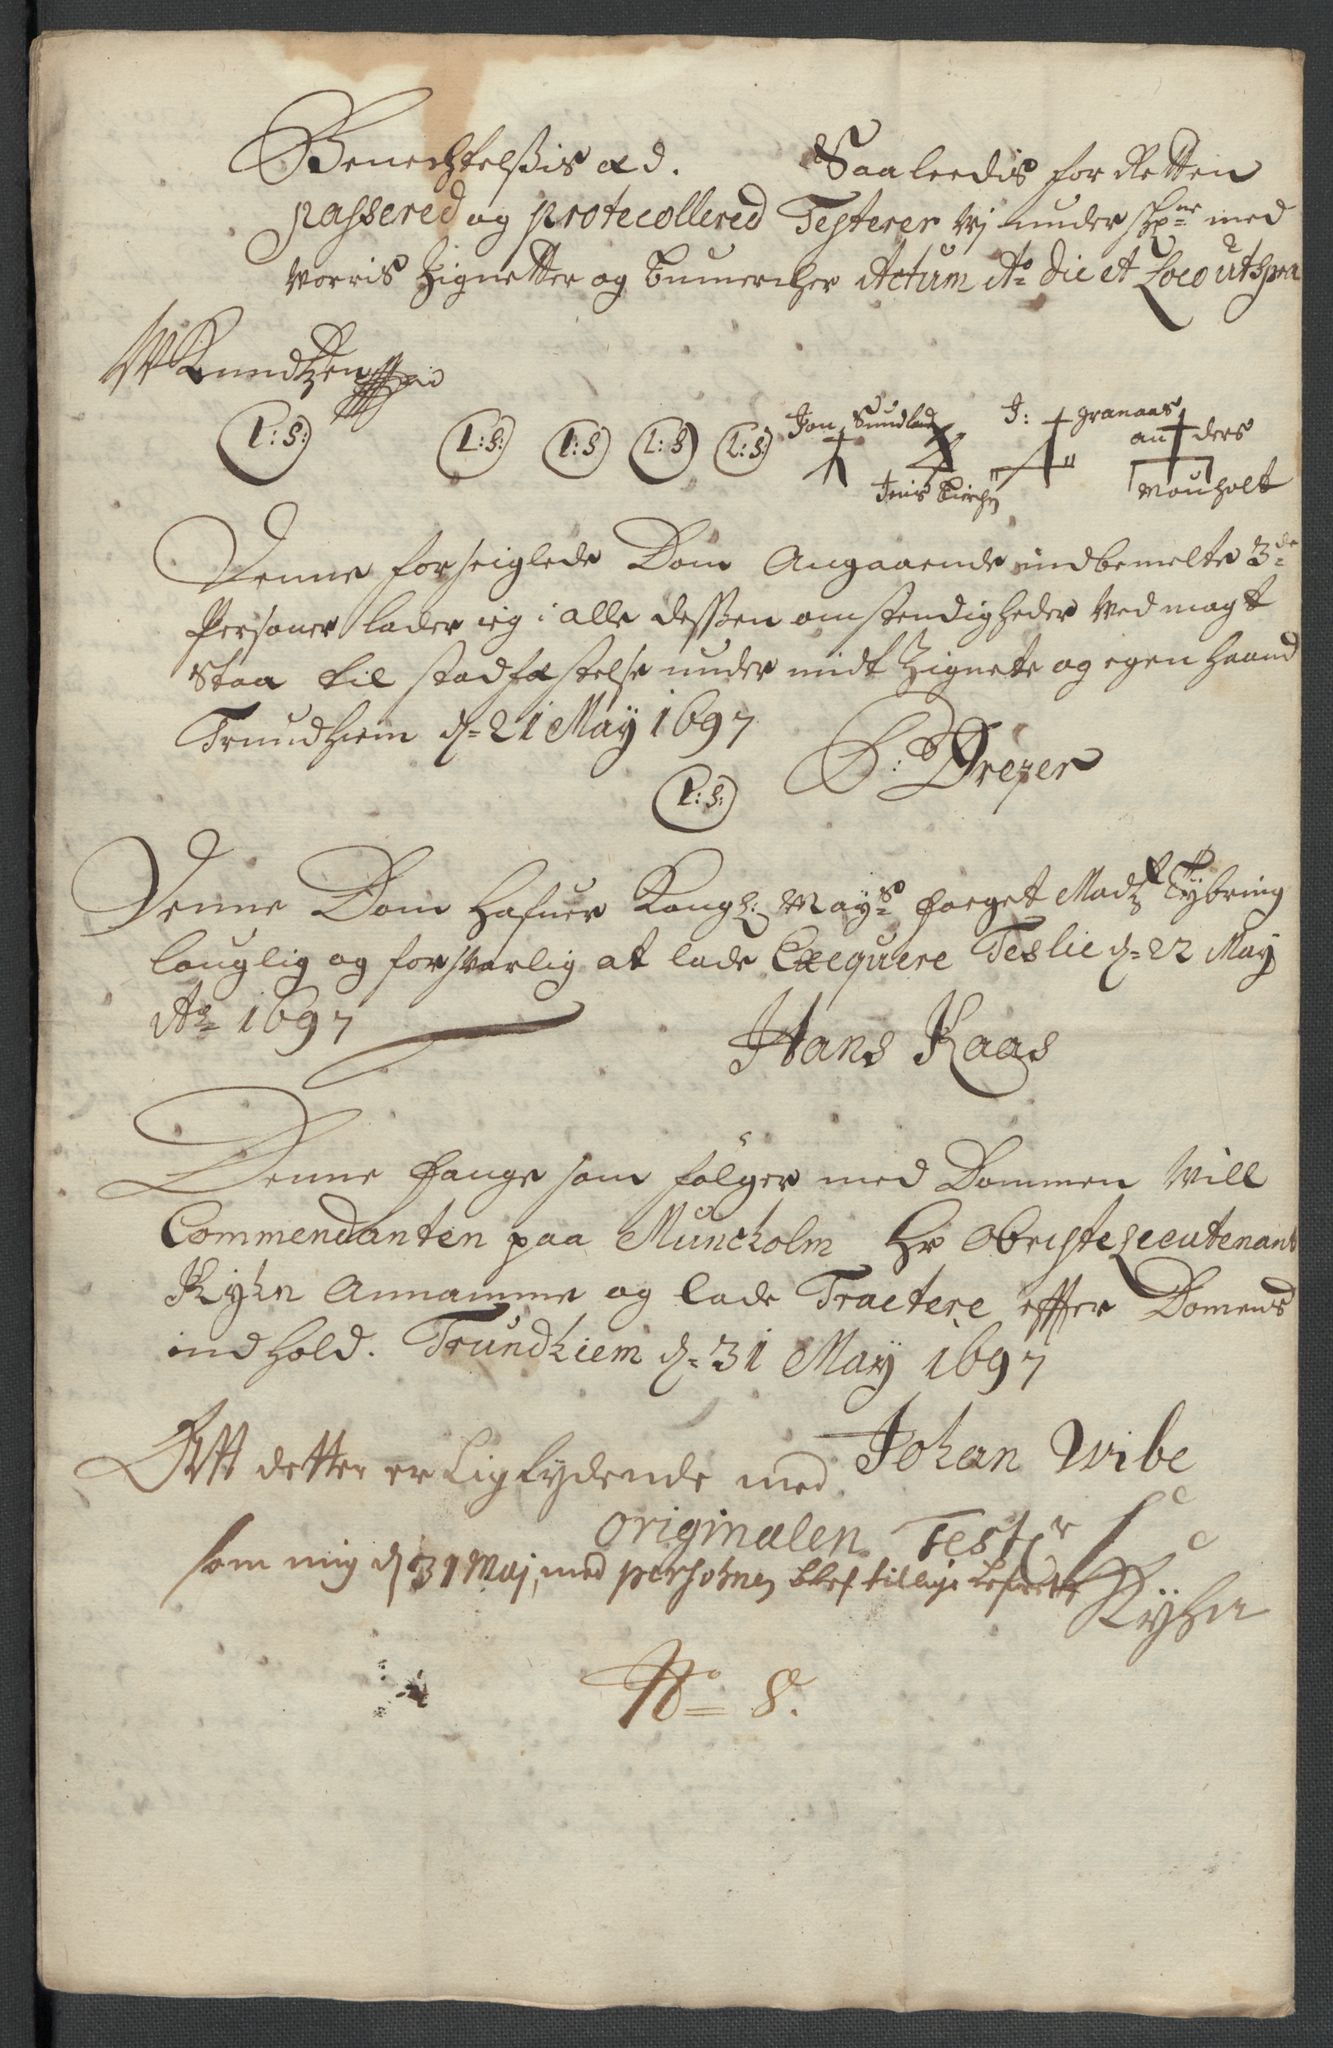 Benechtelssis æd. Saaledis for Retten
passered og protecollered Testerer vj under schr~ne med
vorris Zignetter og bumercher Actum Ao die et Loco ut supra
W Knudtzen
L:S: L:S: L:S L:S L:S:
Jon Sundlad J: granaas
an ders
Jenis Kirchn Mouholt
Denne forseiglede Dom Angaaende indbemelte 3de
Personer lader ieg i alle dessen omstendigheder ved magt
staa til stadfæstelse under mit Zignete og egen haand
Trundhiem d= 21 May 1697
D: Dreyer
L:S:
Denne Dom hafuer Kongl: Mays foeget Madtz Tybring
louglig og forsvarlig at lade Exequere Teslie d= 22 May
Ao 1697
Hans Kaas
Denne fange som fölger med Dommen Vill
Commendanten paa Munckholm Hr Obriste Leeutenant
Kyhn Annamme og lade Tractere effter Domens
indhold. Trundhiem d= 31 May 1697
Johan Wibe
Att dette er Liglydende med
originalen Test:r
som mig d 31 Maj, med persohnen blef tillige lefveret
Kyhn
No= 8.